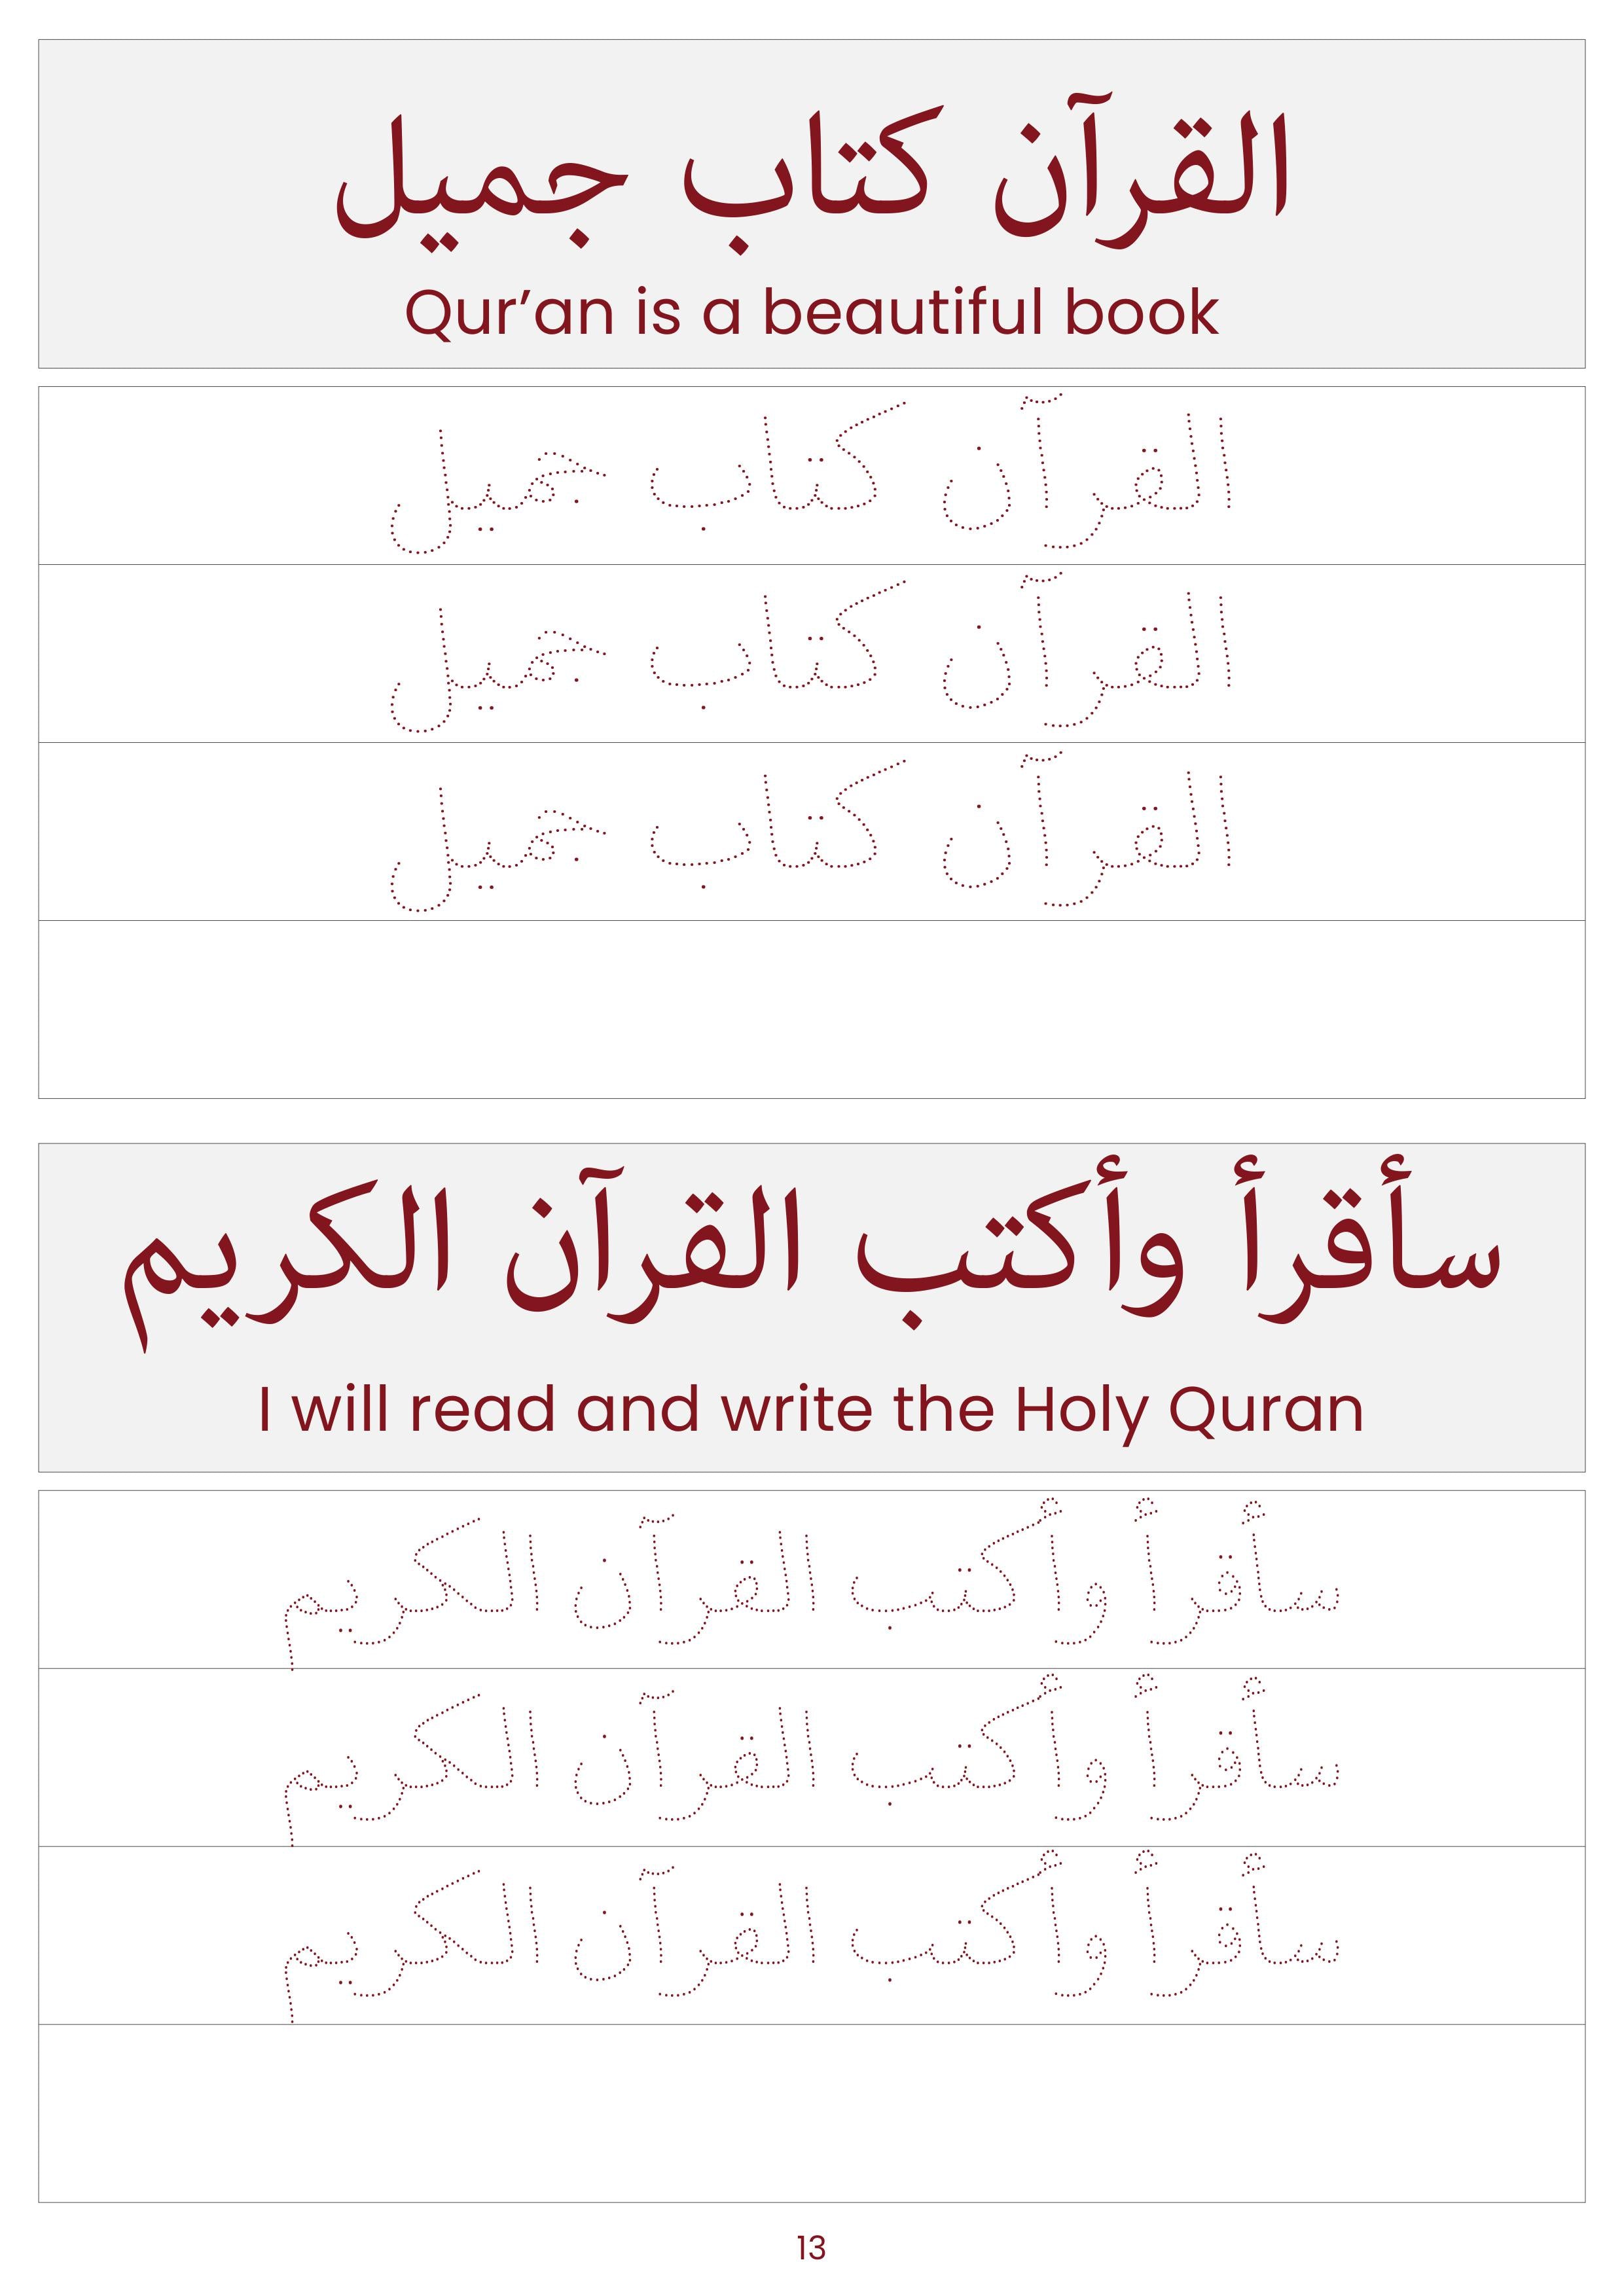 القرآن كتاب جميل
Qur’an is a beautiful book
القرآن كتاب جميل
القرآن كتاب جميل
القرآن كتاب جميل
سأقرأ وأكتب القرآن الكريم
I will read and write the Holy Quran
سأقرأ وأكتب القرآن الكريم
سأقرأ وأكتب القرآن الكريم
سأقرأ وأكتب القرآن الكريم
13